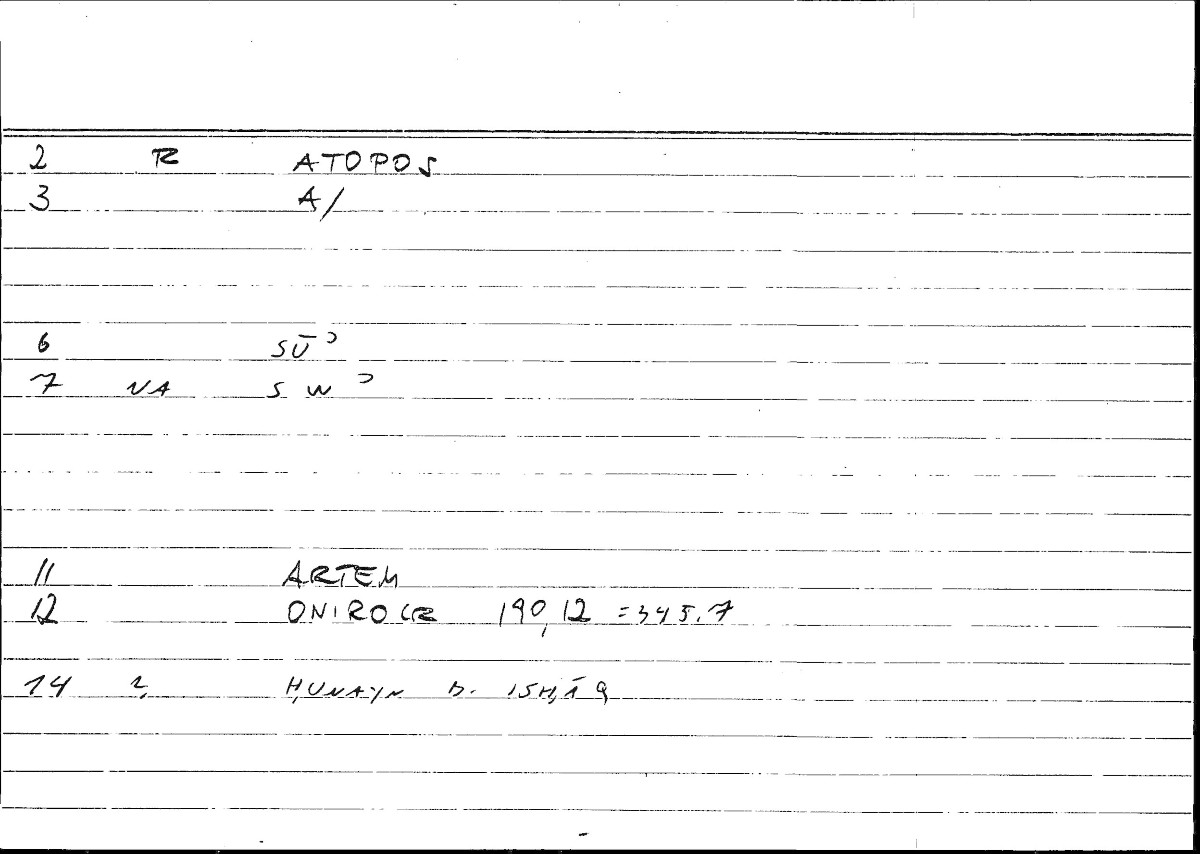 2 R ATOPOS
3 A/
6 SŪʾ
7 NA S W ʾ
11 ARTEM
12 ONIROCR 190,12 =345.7
14 ḤUNAYN b. ISḤĀQ